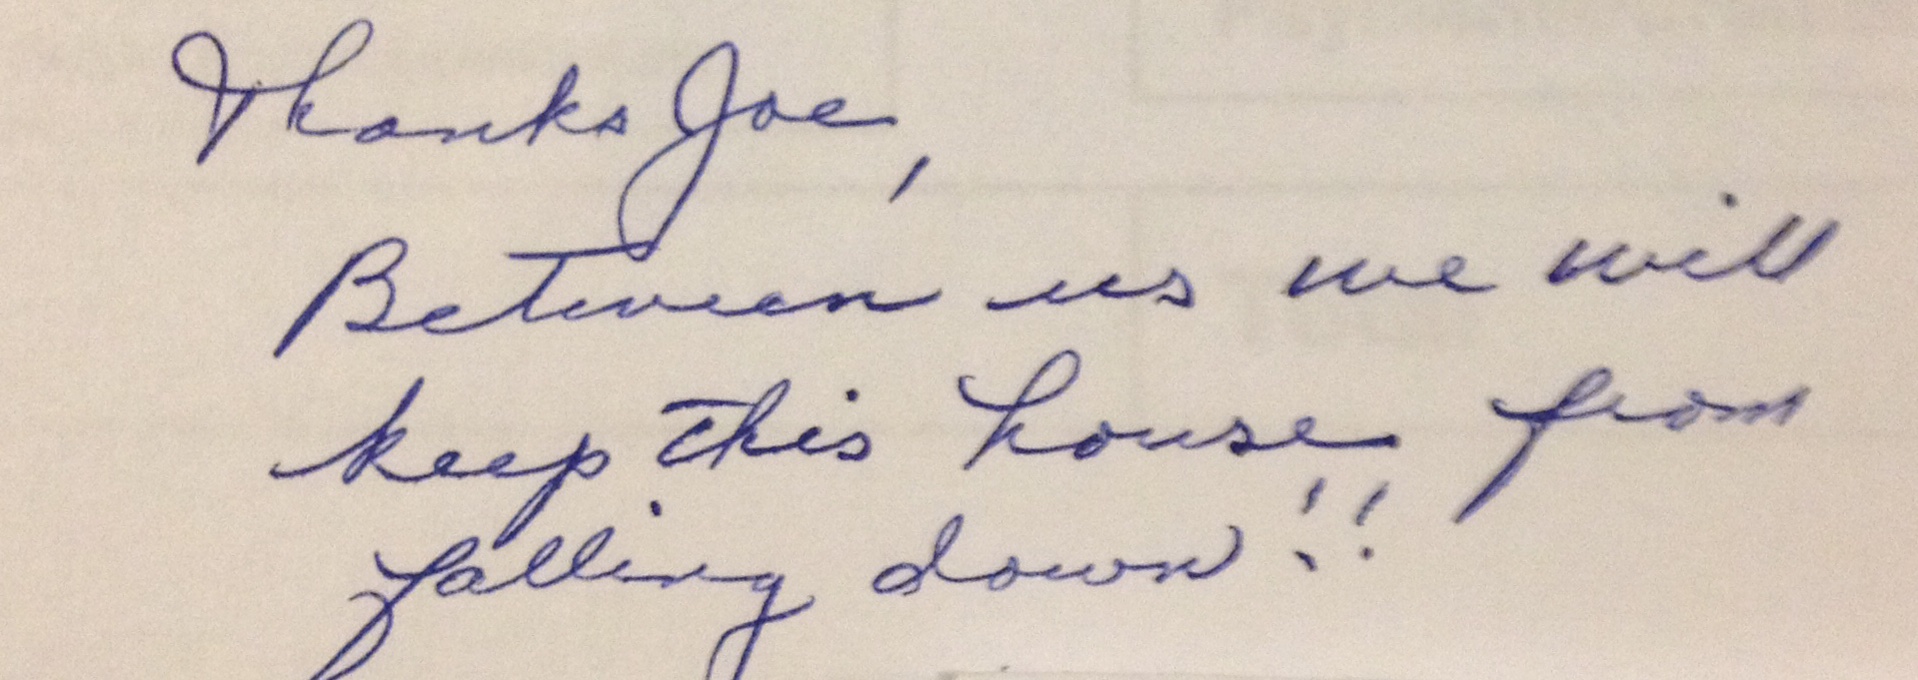 Thanks Joe,
Between us we will
keep this house from
falling down!!